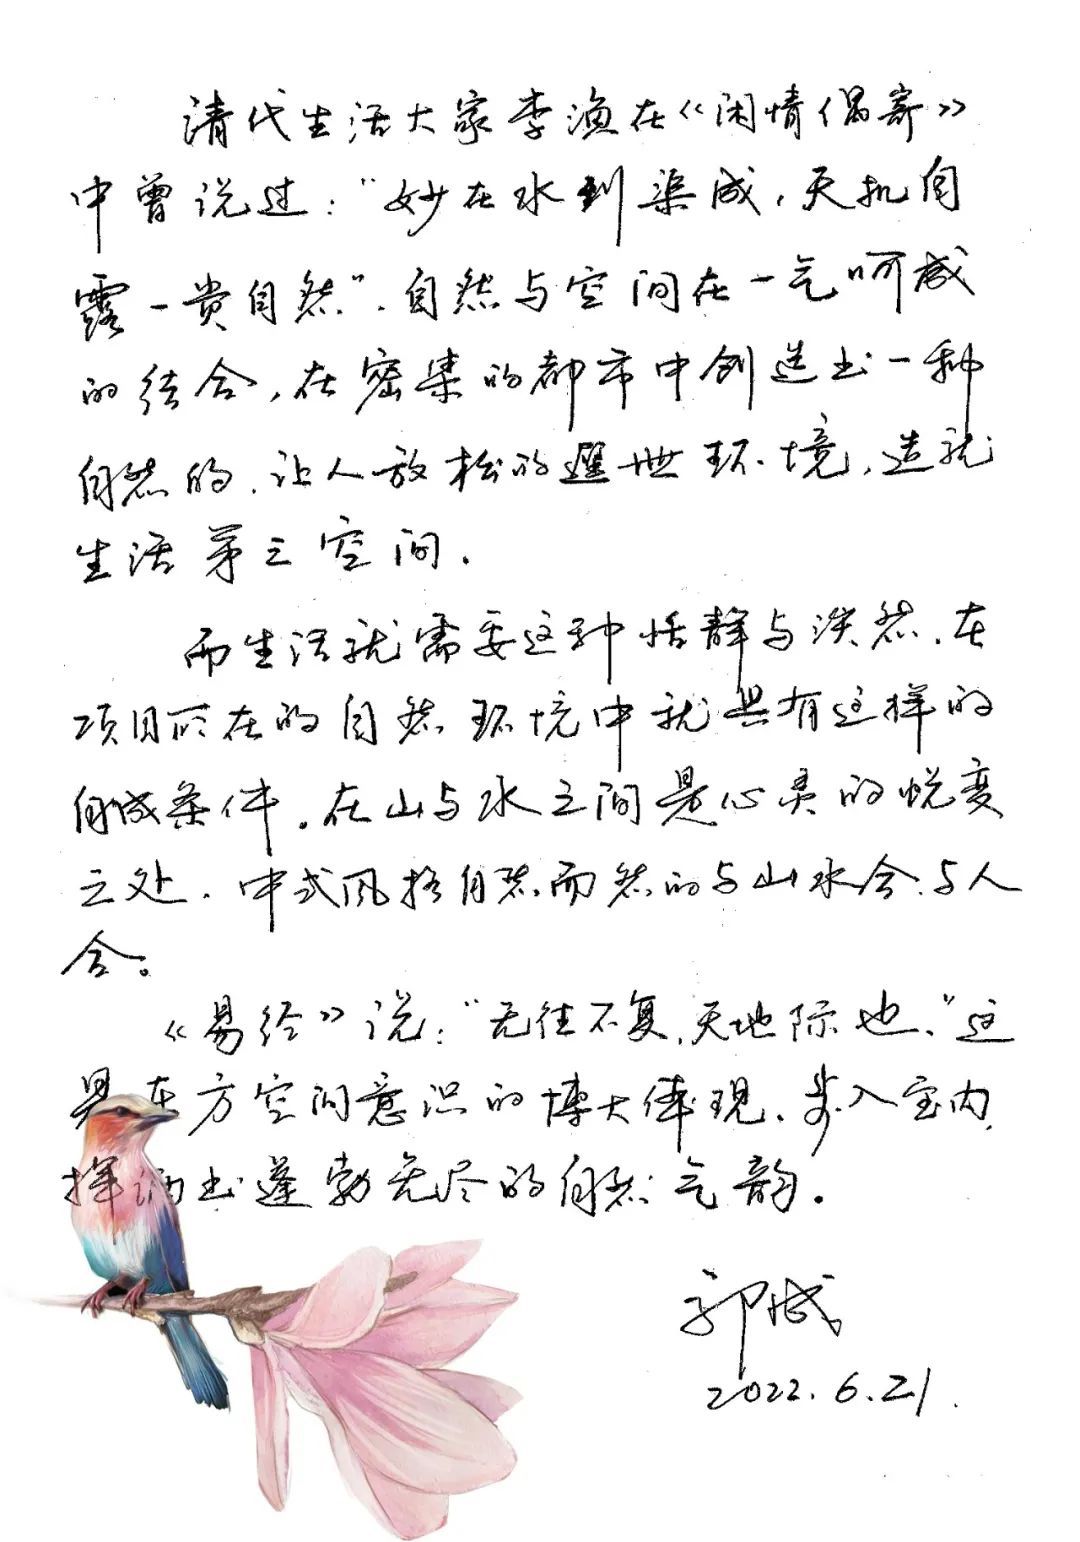 清代生活大家李渔在《闲情偶寄》
中曾说过：“妙在水到渠成，天机自
露一贵自然”．自然与空间在一气呵成
的结合，在密集的都市中创造出一种
自然的．让人放松的遁世环境，造就
生活第三空间．
而生活就需要这种恬静与淡然．在
项目所在的自然环境中就具有这样的
自成条件。在山与水之间是心灵的蜕变
之处．中式风格自然而然的与山水合．与人
合。
《易经》说：“无往不复，天地际也．”这
是东方空间意识的博大体现．步入室内
挥洒出蓬勃无尽的自然气韵。
郭成
2022.6.21.